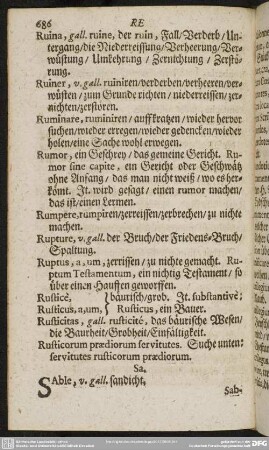 686 RE
Ruina, gall. ruine, der ruin, Fall/Verderb/Un-
tergang/die Niederreissung/Verheerung/Ver-
wüstung/Umkehrung/Zernichtung/Zerstö-
rung.
Ruiner, v. gall. ruiniren/verderben/verheeren/ver-
wüsten/zum Grunde richten/niederreissen/zer-
nichten/zerstören.
Ruminare, ruminiren/auffkratzen/wieder hervor
suchen/wieder erregen/wieder gedencken/wieder
holen/eine Sache wohl erwegen.
Rumor, ein Geschrey/das gemeine Gericht. Ru-
mor sine capite, ein Gericht oder Geschwätz
ohne Anfang/das man nicht weiß/wo es her-
kömt. It. wird gesagt/einen rumor machen/
das ist/einen Lermen.
Rumpere, rumpiren/zerreissen/zerbrechen/zu nichte
machen.
Rupture, v. gall. der Bruch/der Friedens-Bruch/
Spaltung.
Ruptus, a, um, zerrissen/zu nichte gemacht. Ru-
ptum Testamentum, ein nichtig Testament/so
über einen Hauffen geworffen.
Rusticè, bäurisch/grob. It. substantivè;
Rusticus, a, um, Rusticus, ein Bauer.
Rusticitas, gall. rusticité, das bäurische Wesen/
die Baurheit/Grobheit/Einfältigkeit.
Rusticorum prædiorum servitutes. Suche unten:
servitutes rusticorum prædiorum.
Sa.
SAble, v. gall. sandicht,
Sab-